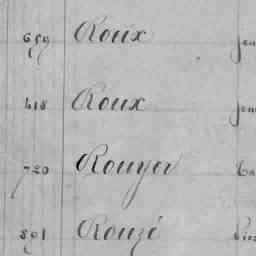 659 Roux
418 Roux
720 Rouyer
801 Rouzé